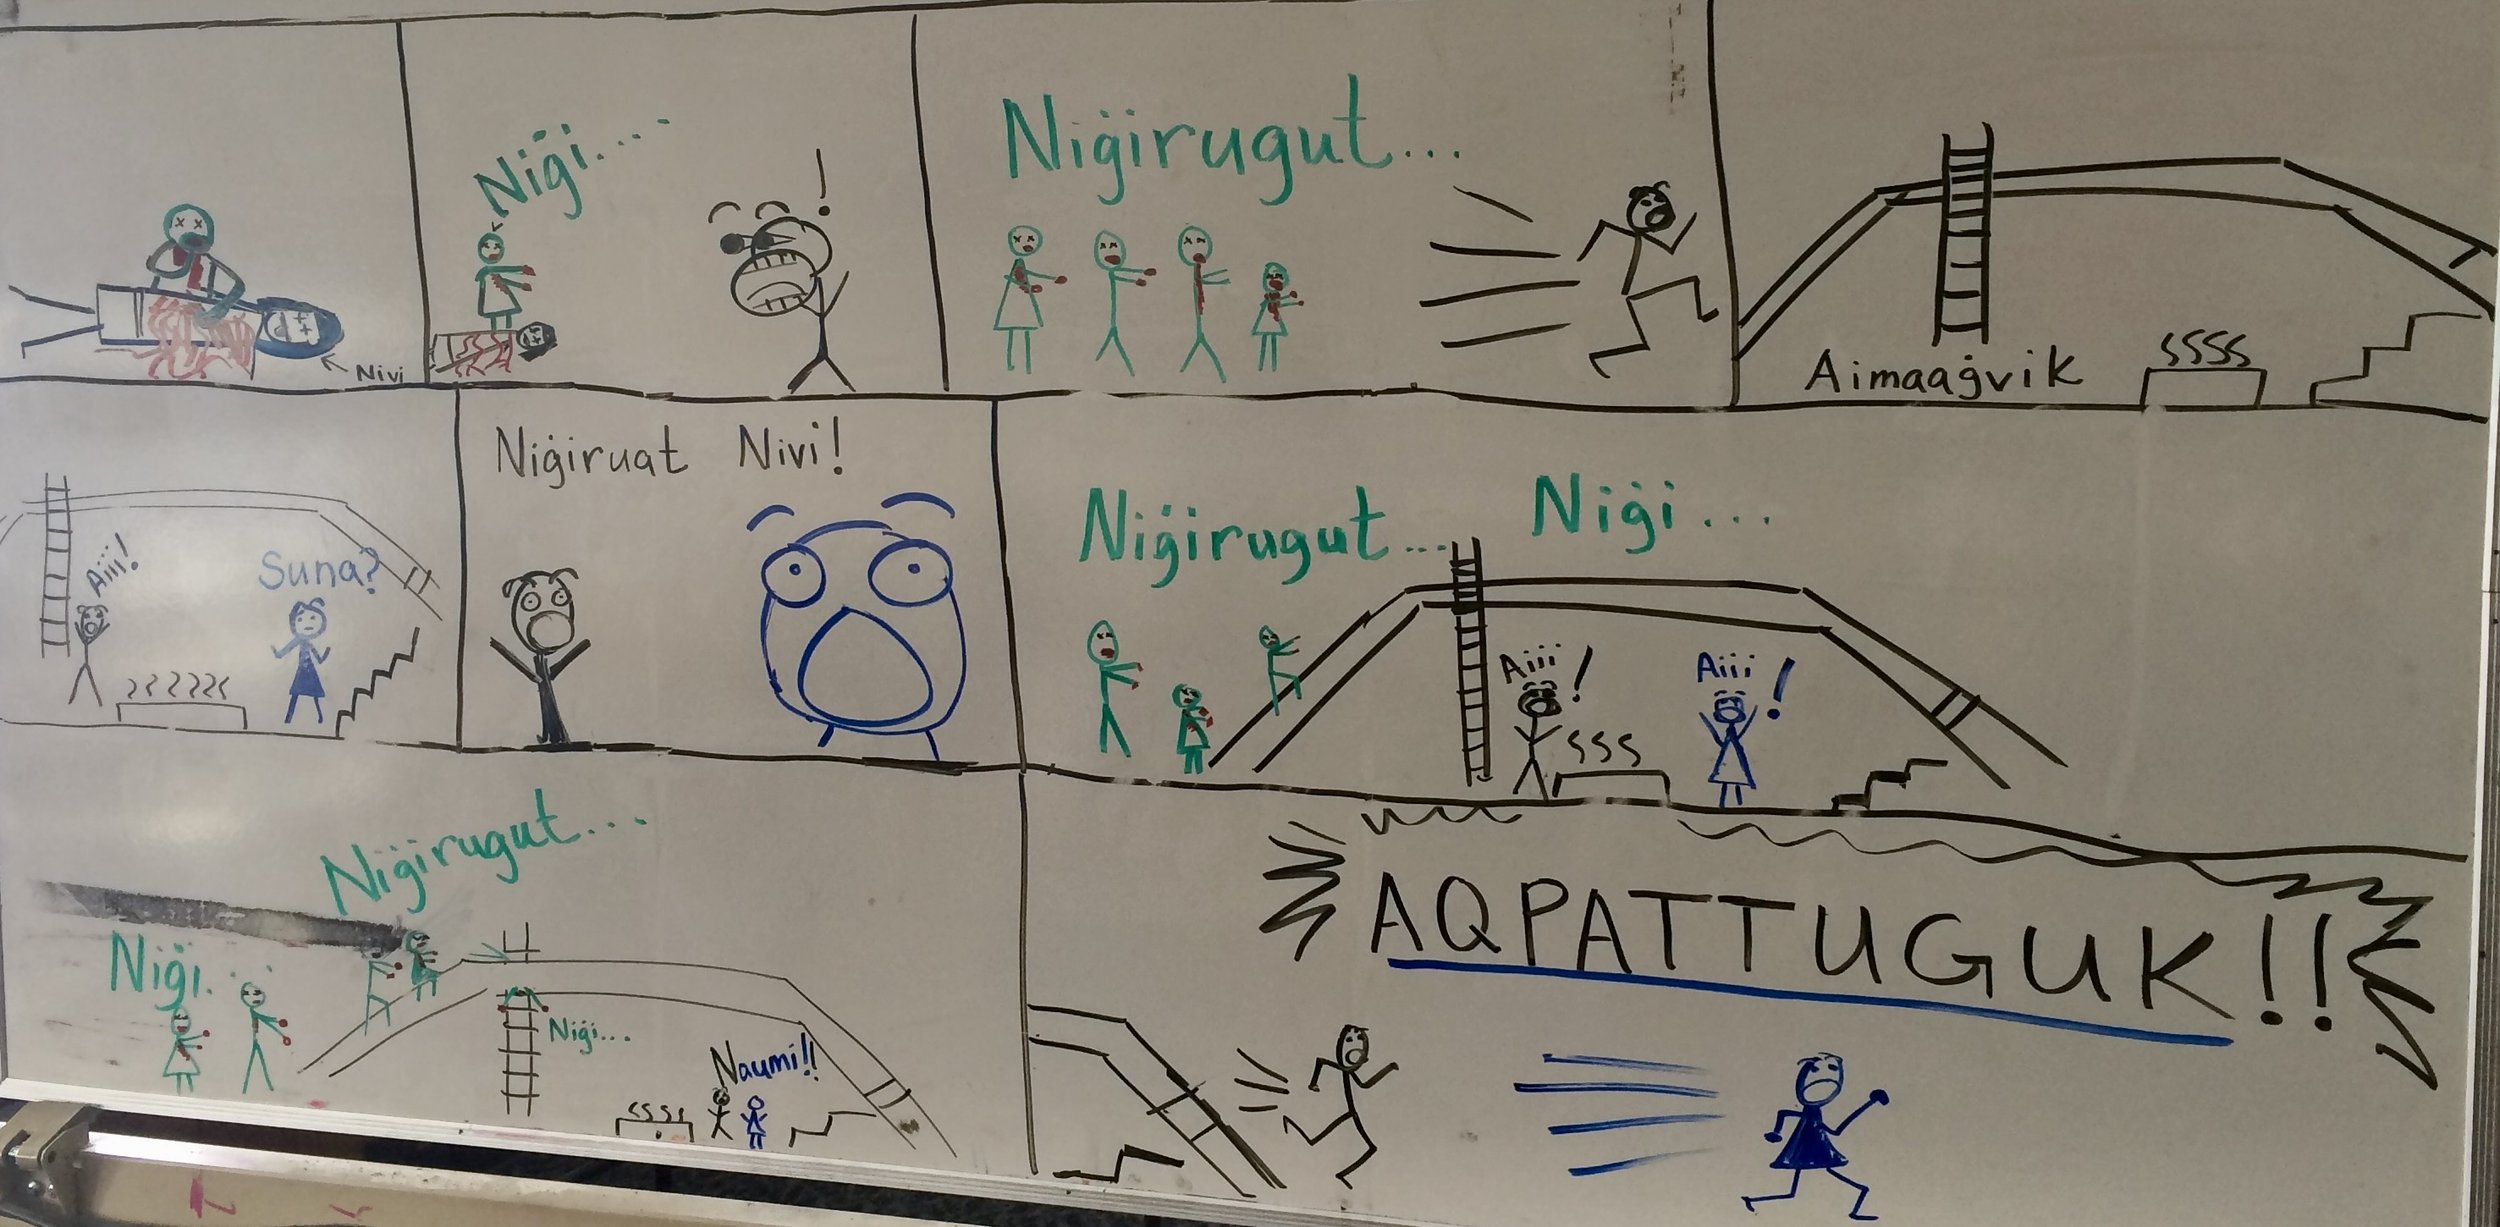 Nivi
Niġi....
!
Niġirugut...
Aimaaġvik
Aiii!
Suna?
Niġiruat Nivi!
Niġirugut...
Niġi...
Aiii!
Aiii!
Niġirugut....
Niġi...
Niġi...
Naumi!!
AQPATTUGUK!!